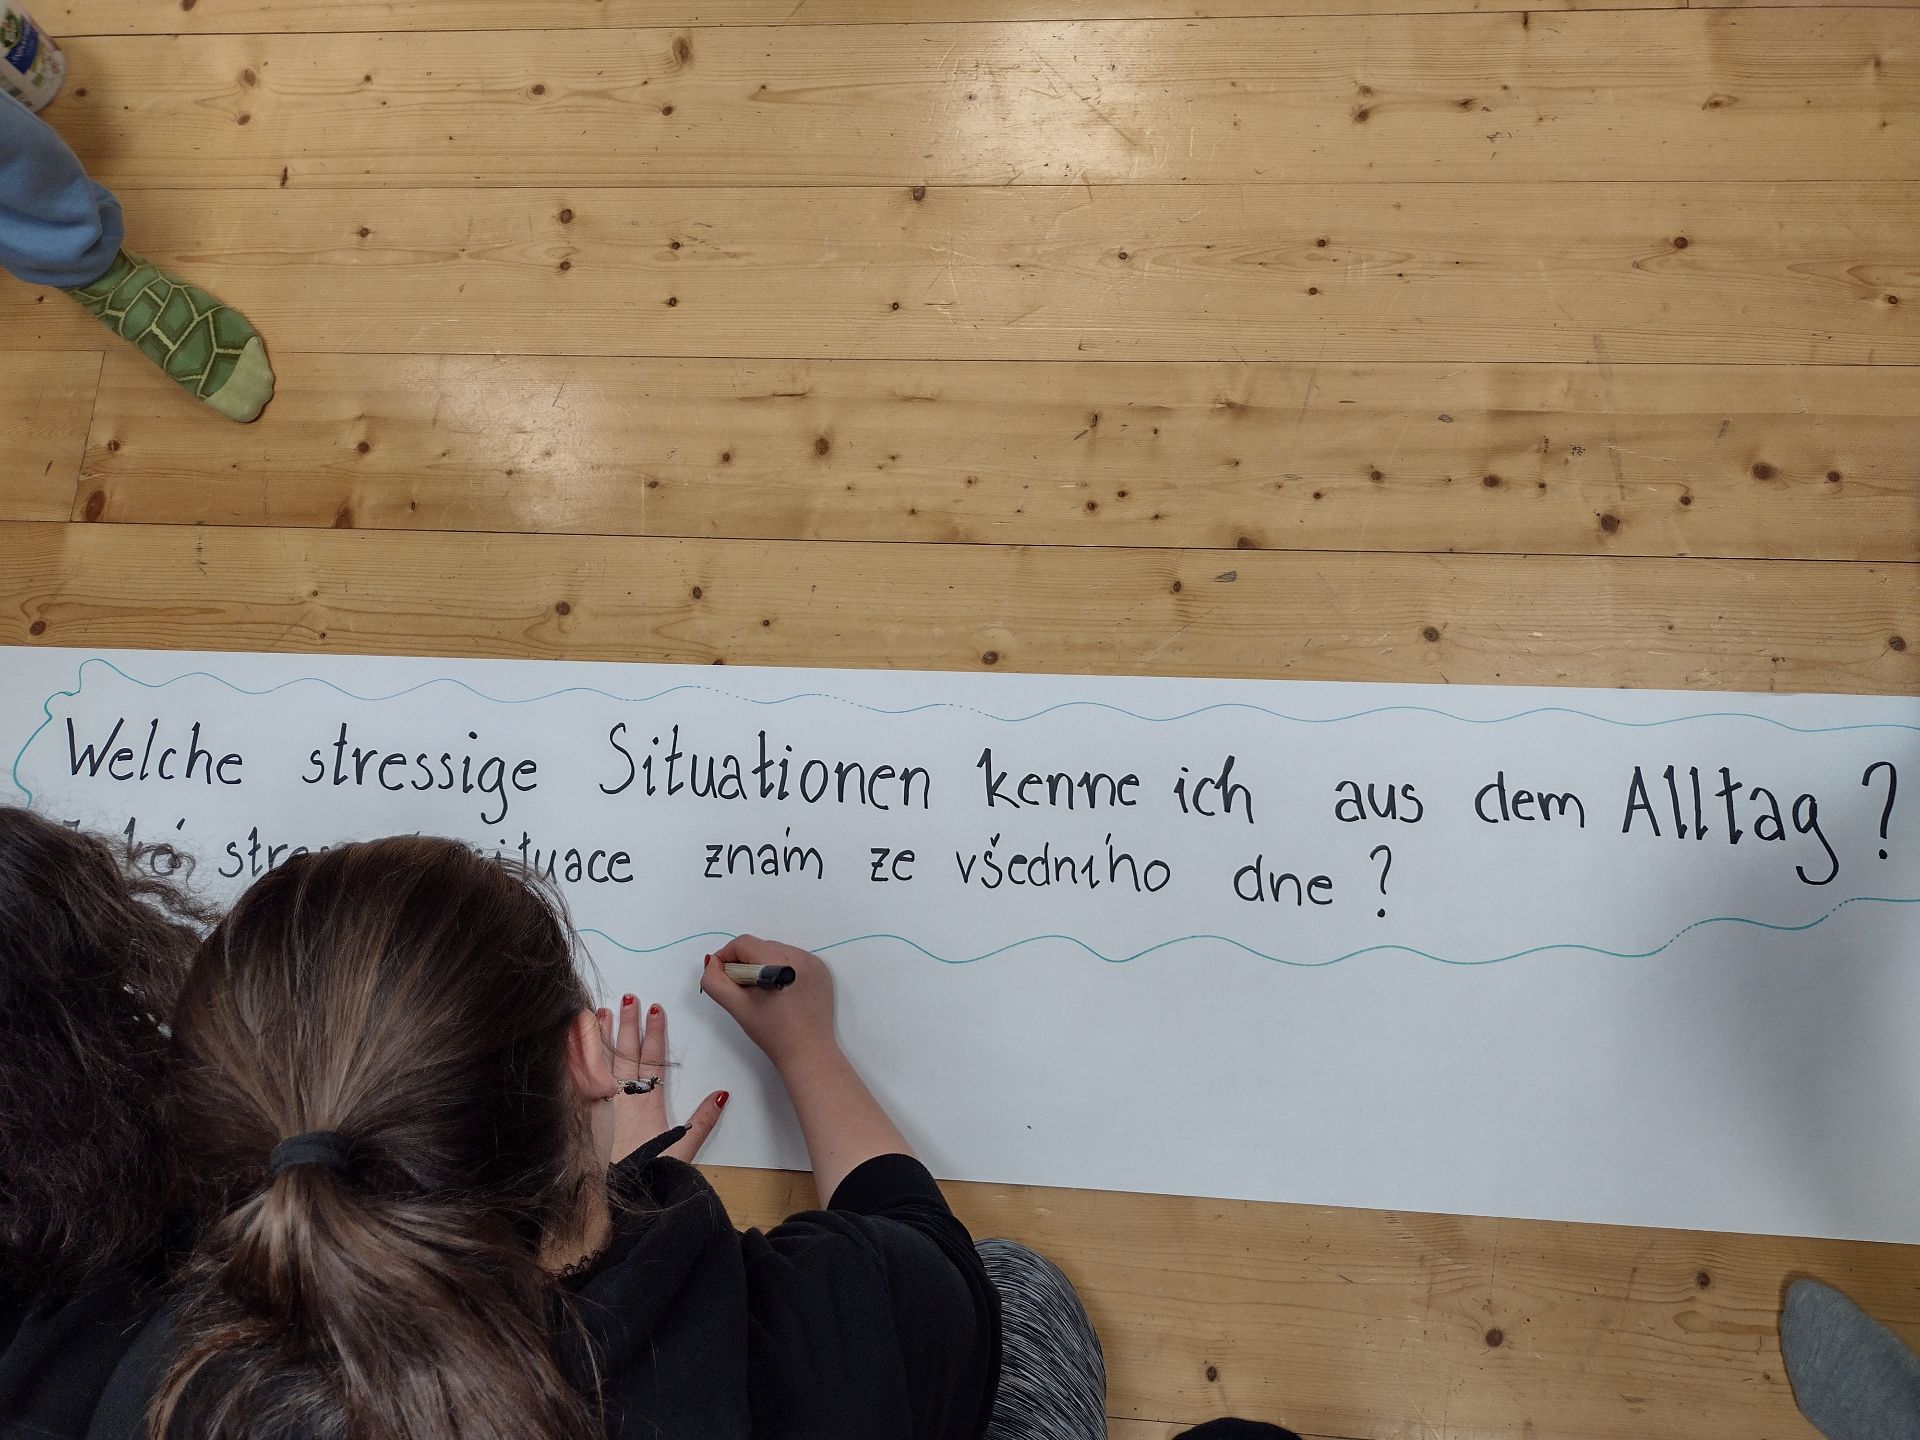 Welche stressige Situationen kenne ich aus dem Alltag?
znám ze všedního dne?